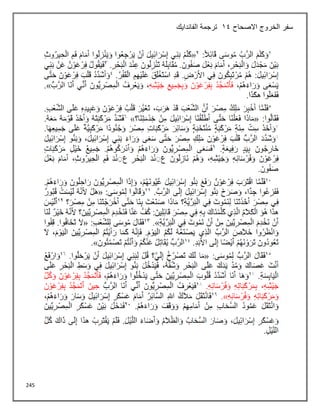 سفر الخروج الاصحاح ١٤ ترجمة الفاندايك
وَكَلَّمَ الرَّبُّ مُوسَى قَائِلًا: «كَلِّمْ بَنِي إِسْرَائِيلَ أَنْ يَرْجِعُوا وَيَنْزِلُوا أَمَامَ فَمِ الْحِيرُوثِ
بَيْنَ مَجْدَلَ وَالْبَحْرِ، أَمَامَ بَعْلَ صَفُونَ. مُقَابِلَهُ تَنْزِلُونَ عِنْدَ الْبَحْرِ. فَيَقُولُ فِرْعَوْنُ عَنْ بَنِي
إِسْرَائِيلَ: هُمْ مُرْتَبِكُونَ فِي الأَرْضِ. قَدِ اسْتَغْلَقَ عَلَيْهِمِ الْقَفْرُ. وَأُشَدِّدُ قَلْبَ فِرْعَوْنَ حَتَّى
يَسْعَى وَرَاءَهُمْ، فَأَتَمَجَّدُ بِفِرْعَوْنَ وَبِجَمِيعِ جَيْشِهِ، وَيَعْرِفُ الْمِصْرِيُّونَ أَنِّي أَنَا الرَّبُّ».
فَفَعَلُوا هكَذَا.
فَلَمَّا أُخْبِرَ مَلِكُ مِصْرَ أَنَّ الشَّعْبَ قَدْ هَرَبَ، تَغَيَّرَ قَلْبُ فِرْعَوْنَ وَعَبِيدِهِ عَلَى الشَّعْبِ.
فَقَالُوا: «مَاذَا فَعَلْنَا حَتَّى أَطْلَقْنَا إِسْرَائِيلَ مِنْ خِدْمَتِنَا؟» فَشَدَّ مَرْكَبَتَهُ وَأَخَذَ قَوْمَهُ مَعَهُ.
وَأَخَذَ سِتَّ مِئَةِ مَرْكَبَةٍ مُنْتَخَبَةٍ وَسَائِرَ مَرْكَبَاتِ مِصْرَ وَجُنُودًا مَرْكَبِيَّةً عَلَى جَمِيعِهَا.
وَشَدَّدَ الرَّبُّ قَلْبَ فِرْعَوْنَ مَلِكِ مِصْرَ حَتَّى سَعَى وَرَاءَ بَنِي إِسْرَائِيلَ، وَبَنُو إِسْرَائِيلَ
خَارِجُونَ بِيَدٍ رَفِيعَةٍ. فَسَعَى الْمِصْرِيُّونَ وَرَاءَهُمْ وَأَدْرَكُوهُمْ. جَمِيعُ خَيْلِ مَرْكَبَاتِ
فِرْعَوْنَ وَفُرْسَانِهِ وَجَيْشِهِ، وَهُمْ نَازِلُونَ عِنْدَ الْبَحْرِ عِنْدَ فَمِ الْحِيرُوثِ، أَمَامَ بَعْلَ
صَفُونَ.
فَلَمَّا اقْتَرَبَ فِرْعَوْنُ رَفَعَ بَنُو إِسْرَائِيلَ عُيُونَهُمْ، وَإِذَا الْمِصْرِيُّونَ رَاحِلُونَ وَرَاءَهُمْ.
فَفَزِعُوا جِدًّا، وَصَرَخَ بَنُو إِسْرَائِيلَ إِلَى الرَّبِّ. وَقَالُوا لِمُوسَى: «هَلْ لأَنَّهُ لَيْسَتْ قُبُورٌ
فِي مِصْرَ أَخَذْتَنَا لِنَمُوتَ فِي الْبَرِّيَّةِ؟ مَاذَا صَنَعْتَ بِنَا حَتَّى أَخْرَجْتَنَا مِنْ مِصْرَ؟ أَلَيْسَ
هذَا هُوَ الْكَلاَمُ الَّذِي كَلَّمْنَاكَ بِهِ فِي مِصْرَ قَائِلِينَ: كُفَّ عَنَّا فَنَخْدِمَ الْمِصْرِيِّينَ؟ لأَنَّهُ خَيْرٌ لَنَا
أَنْ نَخْدِمَ الْمِصْرِيِّينَ مِنْ أَنْ نَمُوتَ فِي الْبَرِّيَّةِ». فَقَالَ مُوسَى لِلشَّعْبِ: «لاَ تَخَافُوا. قِفُوا
وَانْظُرُوا خَلاَصَ الرَّبِّ الَّذِي يَصْنَعُهُ لَكُمُ الْيَوْمَ. فَإِنَّهُ كَمَا رَأَيْتُمُ الْمِصْرِيِّينَ الْيَوْمَ، لاَ
تَعُودُونَ تَرَوْنَهُمْ أَيْضًا إِلَى الأَبَدِ. الرَّبُّ يُقَاتِلُ عَنْكُمْ وَأَنْتُمْ تَصْمُتُونَ».
فَقَالَ الرَّبُّ لِمُوسَى: «مَا لَكَ تَصْرُخُ إِلَيَّ؟ قُلْ لِبَنِي إِسْرَائِيلَ أَنْ يَرْحَلُوا. وَارْفَعْ
أَنْتَ عَصَاكَ وَمُدَّ يَدَكَ عَلَى الْبَحْرِ وَشُقَّهُ، فَيَدْخُلَ بَنُو إِسْرَائِيلَ فِي وَسَطِ الْبَحْرِ عَلَى
الْيَابِسَةِ. وَهَا أَنَا أُشَدِّدُ قُلُوبَ الْمِصْرِيِّينَ حَتَّى يَدْخُلُوا وَرَاءَهُمْ، فَأَتَمَجَّدُ بِفِرْعَوْنَ وَكُلِّ
جَيْشِهِ، بِمَرْكَبَاتِهِ وَفُرْسَانِهِ. فَيَعْرِفُ الْمِصْرِيُّونَ أَنِّي أَنَا الرَّبُّ حِينَ أَتَمَجَّدُ بِفِرْعَوْنَ
وَمَرْكَبَاتِهِ وَفُرْسَانِهِ». فَانْتَقَلَ مَلاَكُ اللهِ السَّائِرُ أَمَامَ عَسْكَرِ إِسْرَائِيلَ وَسَارَ وَرَاءَهُمْ،
وَانْتَقَلَ عَمُودُ السَّحَابِ مِنْ أَمَامِهِمْ وَوَقَفَ وَرَاءَهُمْ. فَدَخَلَ بَيْنَ عَسْكَرِ الْمِصْرِيِّينَ
وَعَسْكَرِ إِسْرَائِيلَ، وَصَارَ السَّحَابُ وَالظَّلاَمُ وَأَضَاءَ اللَّيْلَ. فَلَمْ يَقْتَرِبْ هذَا إِلَى ذَاكَ كُلَّ
اللَّيْلِ.
245